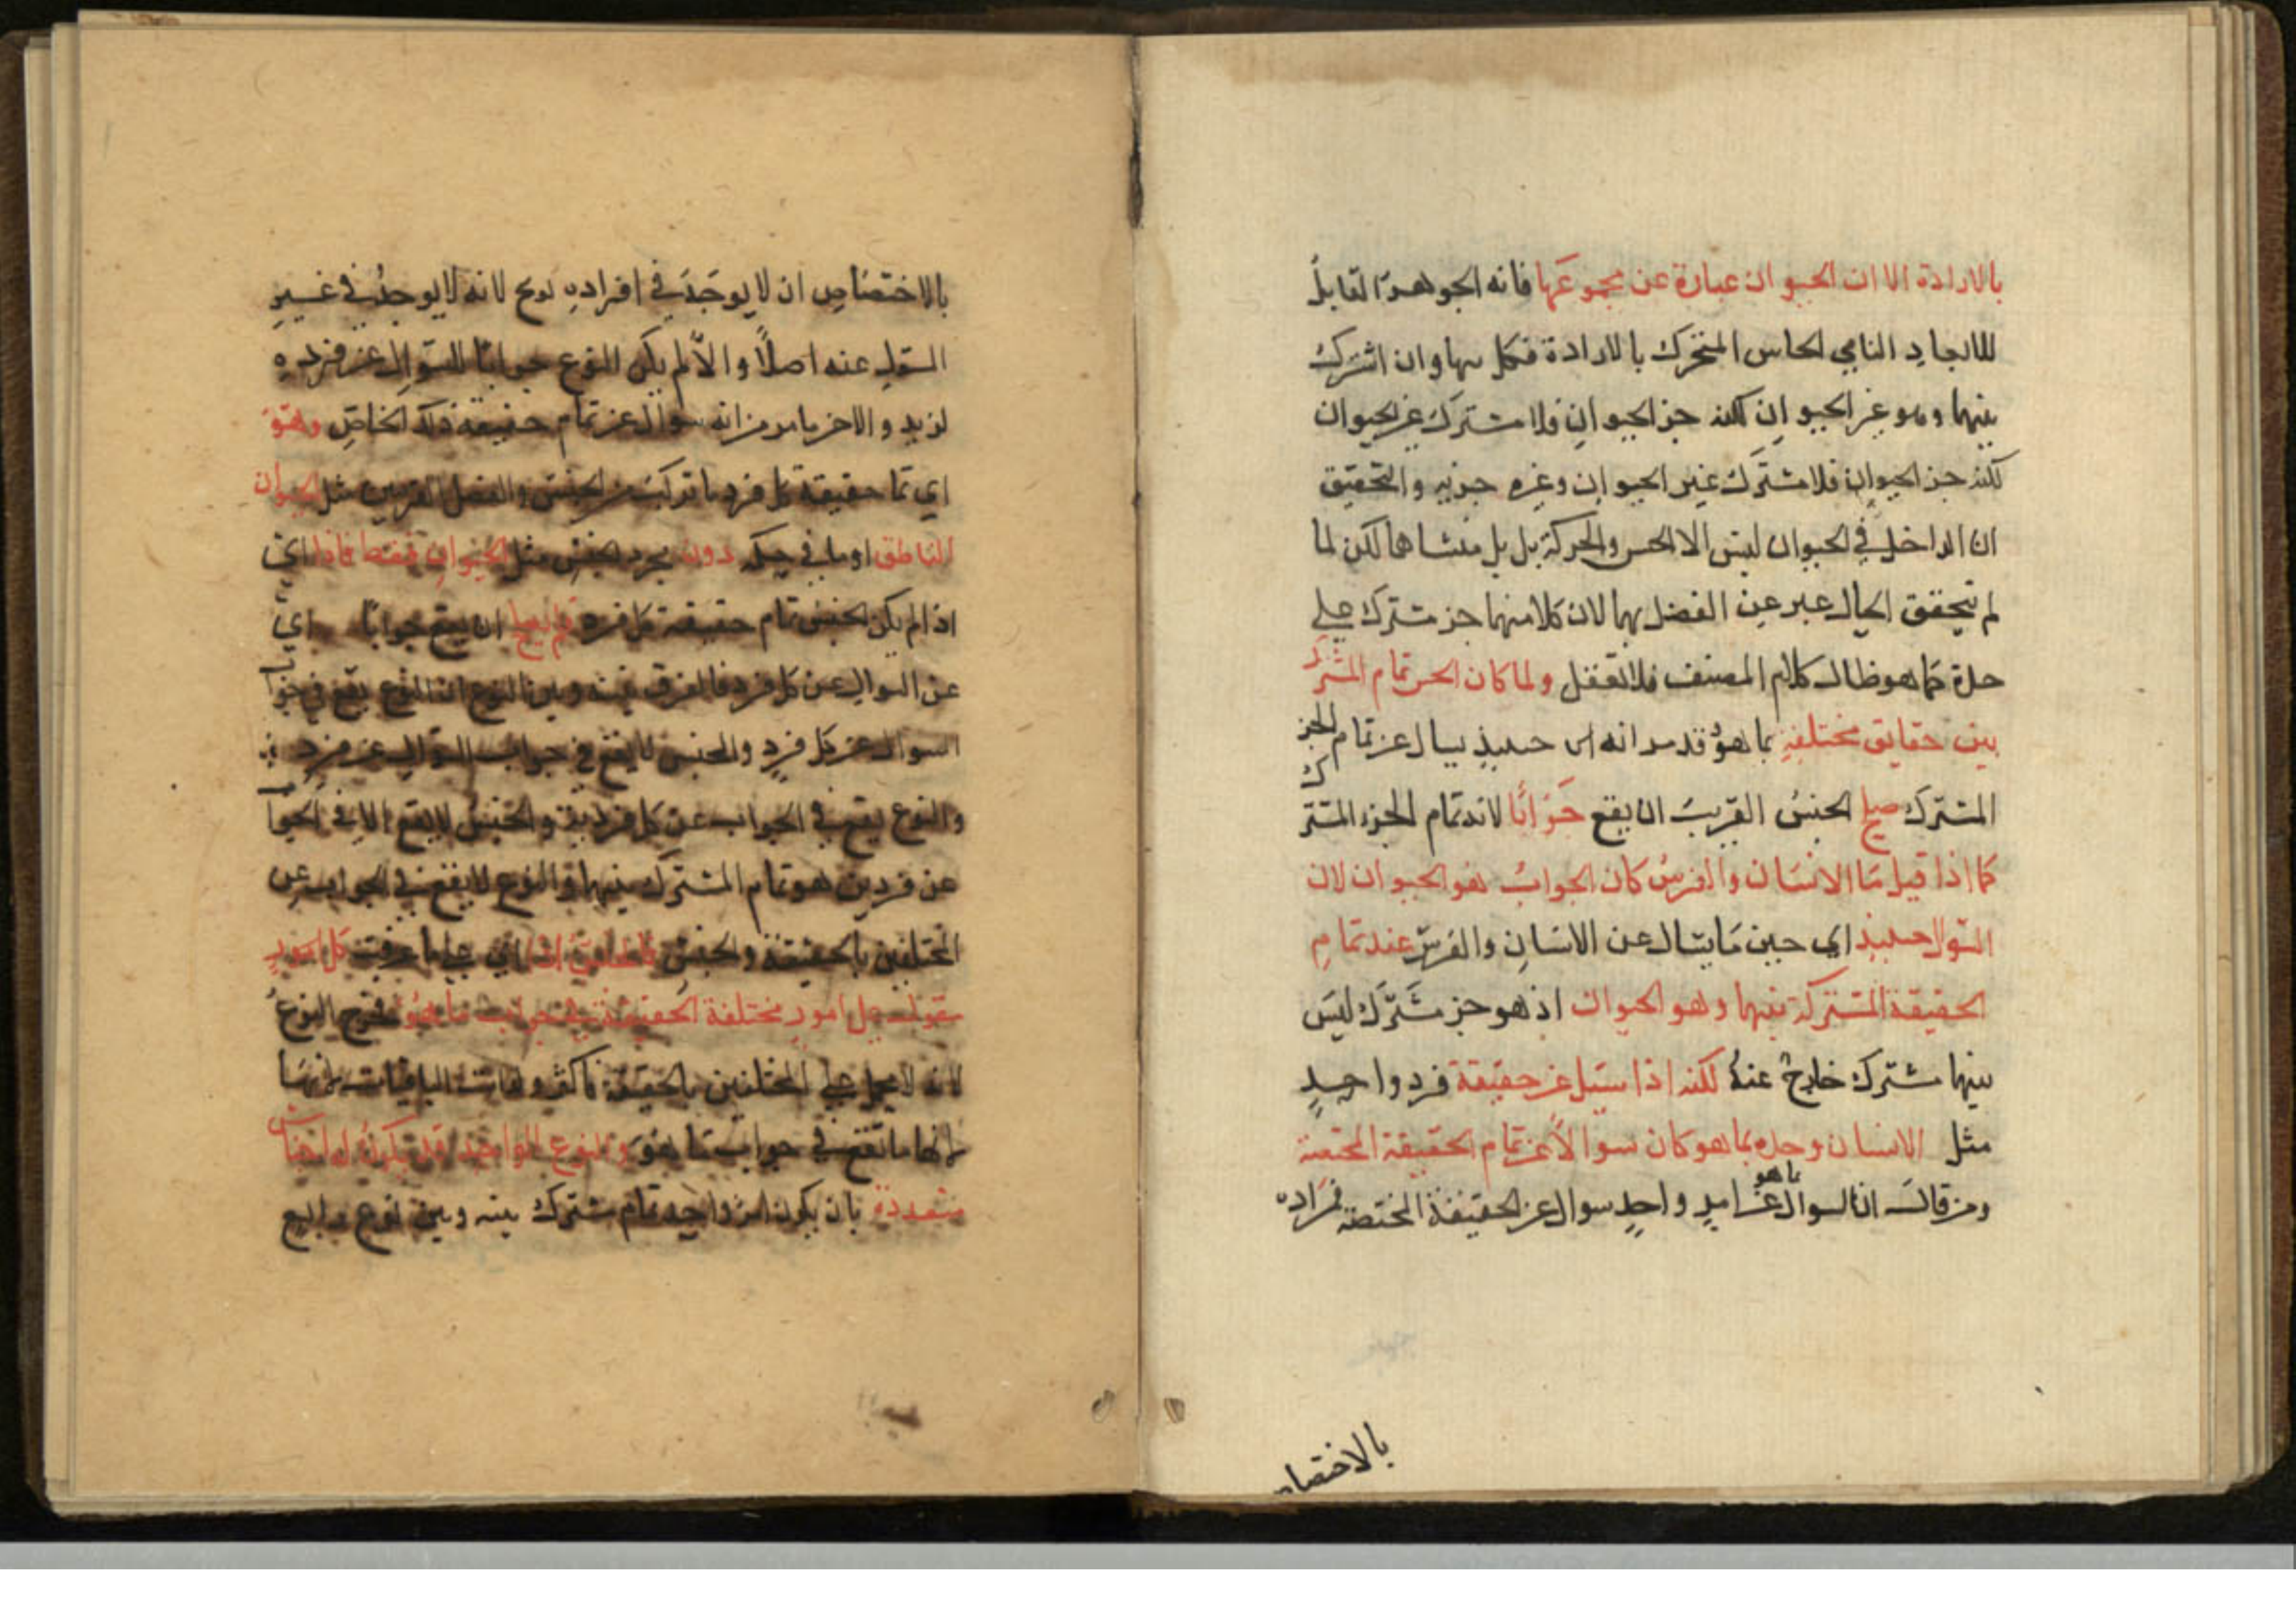 بالارادة الا ان الحيوان عبارة عن مجموعها فانه الجوهر القابل
للابعاد النامي الحاس المتحرك بالارادة فكل منها وان اشترك
بينهما وهو غير الحيوان لكنه جز الحيوان فلا مشترك غير الحيوان
لكنه جز الحيوان فلا مشترك غير الحيوان وغيره جزيه والتحقيق
ان الداخل في الحيوان ليس الا الحس والحركة بل بل منشاهما لكن لما
لم يتحقق الحال عبر عن الفصل بهما لان كلا منهما جز مشترك على
حدة كما هو ظاهر كلام المصنف فلا تغفل ولما كان الجنس تمام المشترك
بين حقايق مختلفة بما هو قد مر انه حينيذ يسال عن تمام الجز
المشترك صلح الجنس القريب ان يقع جوابا لانه تمام الجزء المشترك
كما اذا قيل ما الانسان والفرس كان الجواب هو الحيوان لان
السؤال حينيذ اي حين ما يسال عن الانسان والفرس عند تمام
الحقيقة المشتركة بينهما وهو الحيوان اذ هو جز مشترك ليس
بينهما مشترك خارج عنه لكنه اذا سئل عن حقيقة فرد واحد
مثل الانسان وحده بما هو كان سوالا عن تمام الحقيقة المختصة
ومن قال ان السوال بما هو عن امر واحد سوال عن الحقيقة المختصة افراده
بالاختصا
بالاختصاص ان لا يوجد في افراده نوع لانه لا يوجد في غير
المسؤل عنه اصلا والا لم يكن النوع جوابا للسؤال عن فرده
لزيد والاخر ما مر من انه سوال عن تمام حقيقة ذلك الخاص وهو
اي تمام حقيقة كل فرد ما تركب من الجنس والفصل القريبين مثل الحيوان
الناطق او ما في حكمه دون مجرد الجنس مثل الحيوان فقط فاذا اي
اذا لم يكن الجنس تمام حقيقة كل فرد لم يصلح ان يقع جوابا اي
عن السوال عن كل فرد فالفرق بينه وبين النوع ان النوع يقع في جوا
السوال عن كل فرد والجنس لا يقع في جواب السوال عن فرد
والنوع يقع في الجواب عن كل فرد والجنس لا يقع الا في الجوا
عن فردين هو تمام المشترك بينهما والنوع لا يقع في الجواب عن
المختلفين بالحقيقة والجنس على ما عرفت كل امور
مقول على امور مختلفة الحقيقة في جواب ما هو فخرج النوع
لانه لا يحمل على المختلفين بالحقيقة
ما تقع في جواب ما هو والنوع الواحد قد يكون له اجناس
متعددة بان يكون امر واحد تمام مشترك بينه وبين نوع